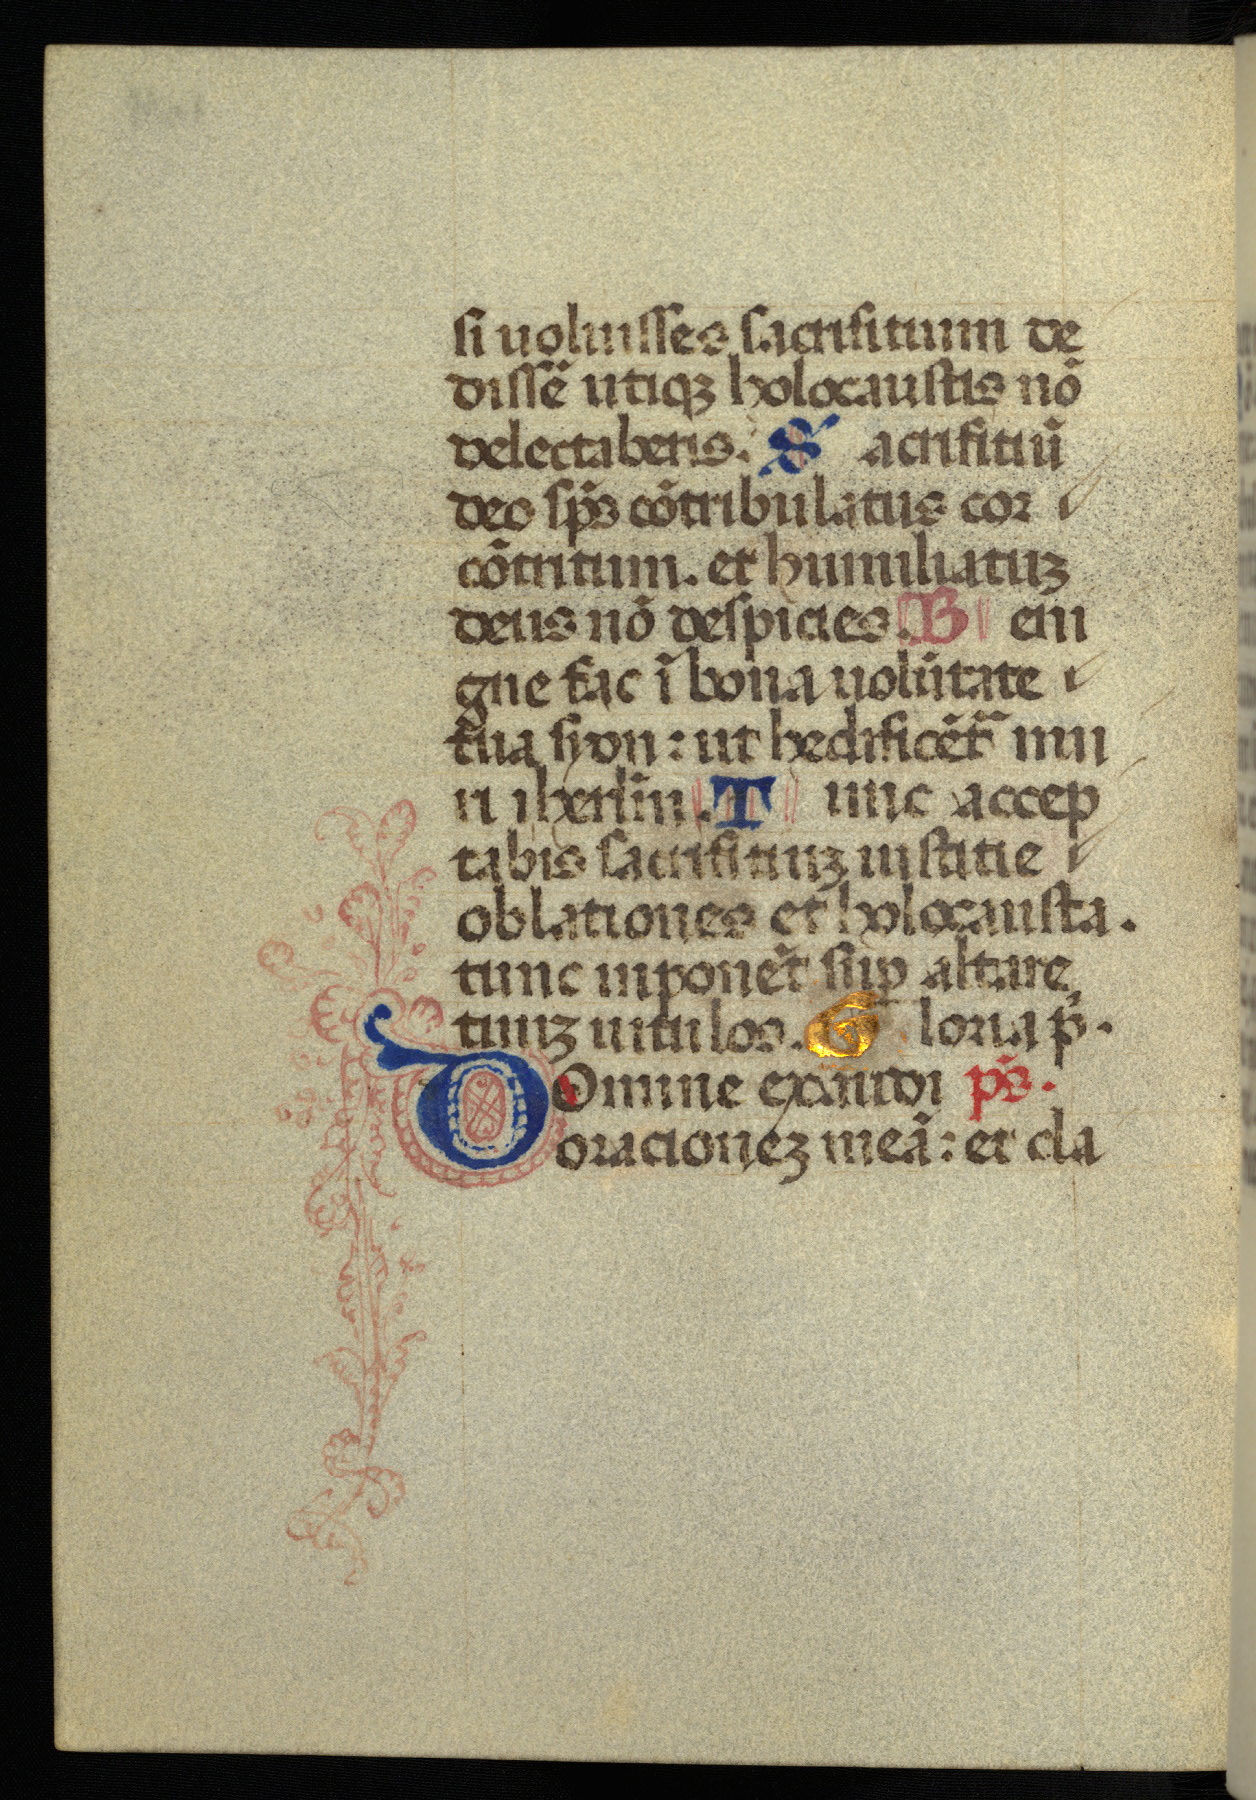 si uoluisses sacrifitium de
dissē utiqꝫ holocaustis nō
delectaberis. S acrifitiū
deo sp̄s cōtribulatus cor
cōtritum. et humiliatuꝫ
deus nō despicies. B enī
gne fac ī bona uolūtate
tua syon: ut hedificēt᷑ mu
ri iherlm̄. T unc accep
tabis sacrifitiuꝫ iustitie
oblationes et holocausta.
tunc inponēt sup̄ altare
tuuꝫ uitulos. G loria p̄.
DOmine exaudi p̄s.
orationeꝫ meā: et cla